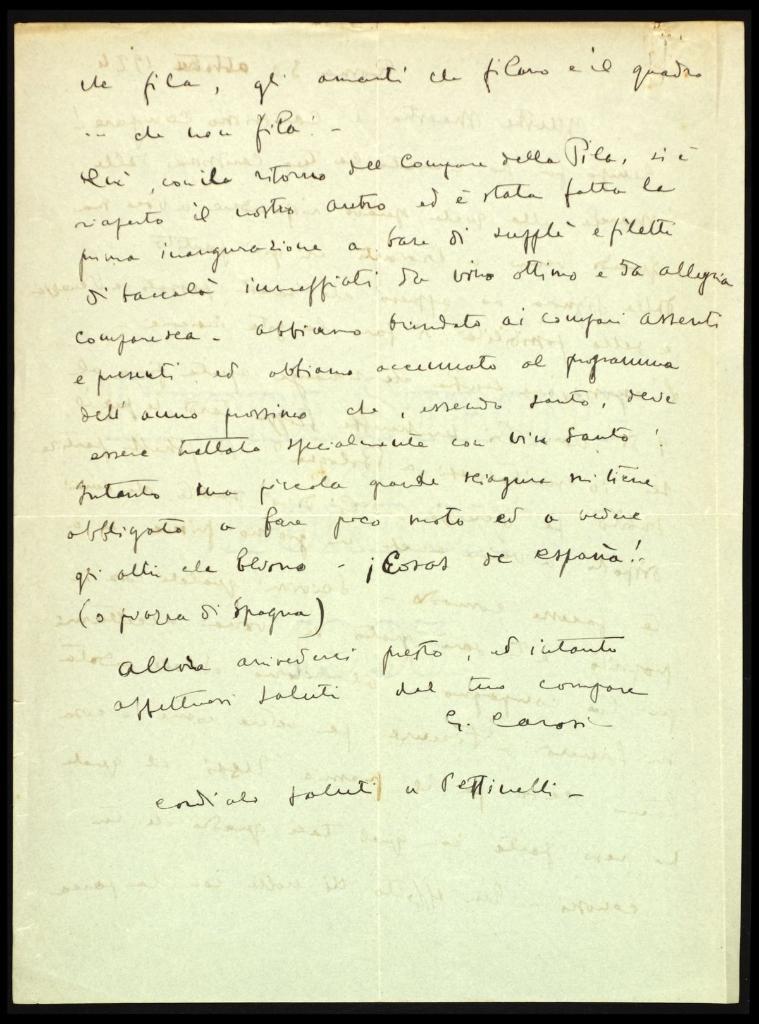 che fila, gli amanti che filano e il quadro
... che non fila! -
Qui, con il ritorno del Compare della Pila, si è
riaperto il nostro antro ed è stata fatta la
prima inaugurazione a base di supplì e filetti
di baccalà innaffiati da vino ottimo e da allegria
comparesca - abbiamo brindato ai compari assenti
e presenti ed abbiamo accennato al programma
dell'anno prossimo che, essendo santo, deve
essere trattato specialmente con vin Santo!
Intanto una piccola grande sciagura mi tiene
obbligato a fare poco moto ed a vedere
gli altri che - ¡Cosas de españa!!
(o piazza di Spagna)
Allora arrivederci presto, ed intanto
affettuosi saluti dal tuo compare
G. Carosi
cordiali saluti a Pettinelli -